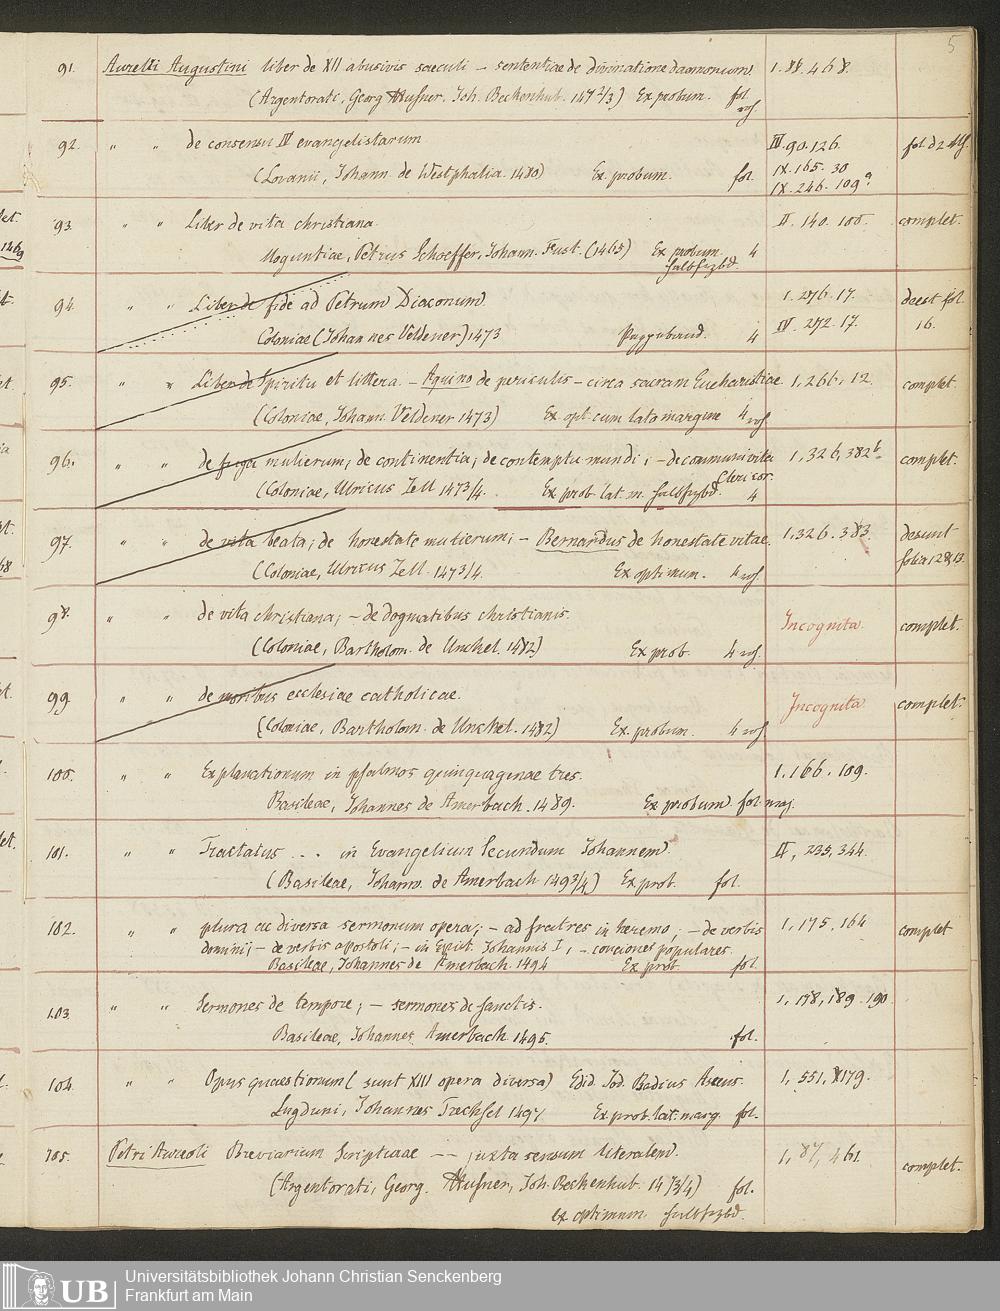 5
91. Aurelii Augustini liber de XII abusivis saeculi – sententiae de divinatione daemonum. 1. 88. 468.
(Argentorati, Georg Husner. Joh. Beckenhub. 147 2/3) Ex probum. fol.
92. " " de consensu IV evangelistarum IV. 90. 126.
(Lovanii, Johann. de Westphalia. 1480) Ex probum. fol. IX. 165. 30
IX. 246. 109 a
93. " " Liber de vita christiana II. 140. 100. complet.
Moguntiae, Petrus Schoeffer, Johann. Fust. (1465) Ex probum 4
halbfrzbd.
94. " " Liber de fide ad Petrum Diaconum. 1. 276. 17. deest fol.
Coloniae (Johannes Veldener) 1473 Pappband. 4 IV. 272. 17. 16.
95. " " Liber de Spiritu et littera. – Aquino de periculis – circa sacram Eucharistiae 1, 266, 12. complet.
(Coloniae, Johann. Veldener 1473) Ex opt. cum lato margine 4
96. " " de fuga mulierum; de continentia; de contemptu mundi; – de communi vita 1, 326, 382 b. complet.
clericor.
(Coloniae, Ulricus Zell 1473/4. Ex prob. lat. m. halbfrzbd. 4
97. " " de vita beata; de honestate mulierum; – Bernardus de honestate vitae. 1. 326. 383. desunt
(Coloniae, Ulricus Zell. 1473/4. Ex optimum. 4 folia 12 & 13.
98. " " de vita christiana; – de dogmatibus christianis. Incognita. complet.
(Coloniae, Bartholom. de Unckel. 1482) Ex prob. 4
99 " " de moribus ecclesiae catholicae. Incognita complet.
(Coloniae, Bartholom. de Unckel. 1482) Ex. probum. 4
100. " " Explanationum in psalmos quinquagenae tres. 1. 166. 109.
Basileae, Johannes de Amerbach. 1489. Ex probum. fol. maj.
101. " " Tractatus ... in Evangelium secundum Johannem. II, 235, 344.
(Basileae, Johann. de Amerbach 1493/4) Ex prob. fol.
102. " " plura ac diversa sermonum opera; – ad fratres in heremo; – de verbis 1, 175, 164 complet
domini; – de verbis apostoli; – in Epist. Johannis I, – conciones populares.
Basileae, Johannes de Amerbach. 1494 Ex prob. fol.
103. " " Sermones de tempore; – sermones de sanctis. 1, 178, 189. 190.
Basileae, Johannes Amerbach. 1495. fol.
104. " " Opus quaestionum (sunt XIII opera diversa) Edid. Jod. Badius Ascens. 1, 551, 179.
Lugduni, Johannes Trechsel 1497 Ex prob. lat: marg. fol.
105. Petri Aureoli Breviarium Scripturae –– juxta sensum literalem. 1, 87, 461. complet.
(Argentorati, Georg. Husner, Joh. Beckenhub. 14 73/4) fol.
ex optimum. halbfrzbd.
UB
Universitätsbibliothek Johann Christian Senckenberg
Frankfurt am Main